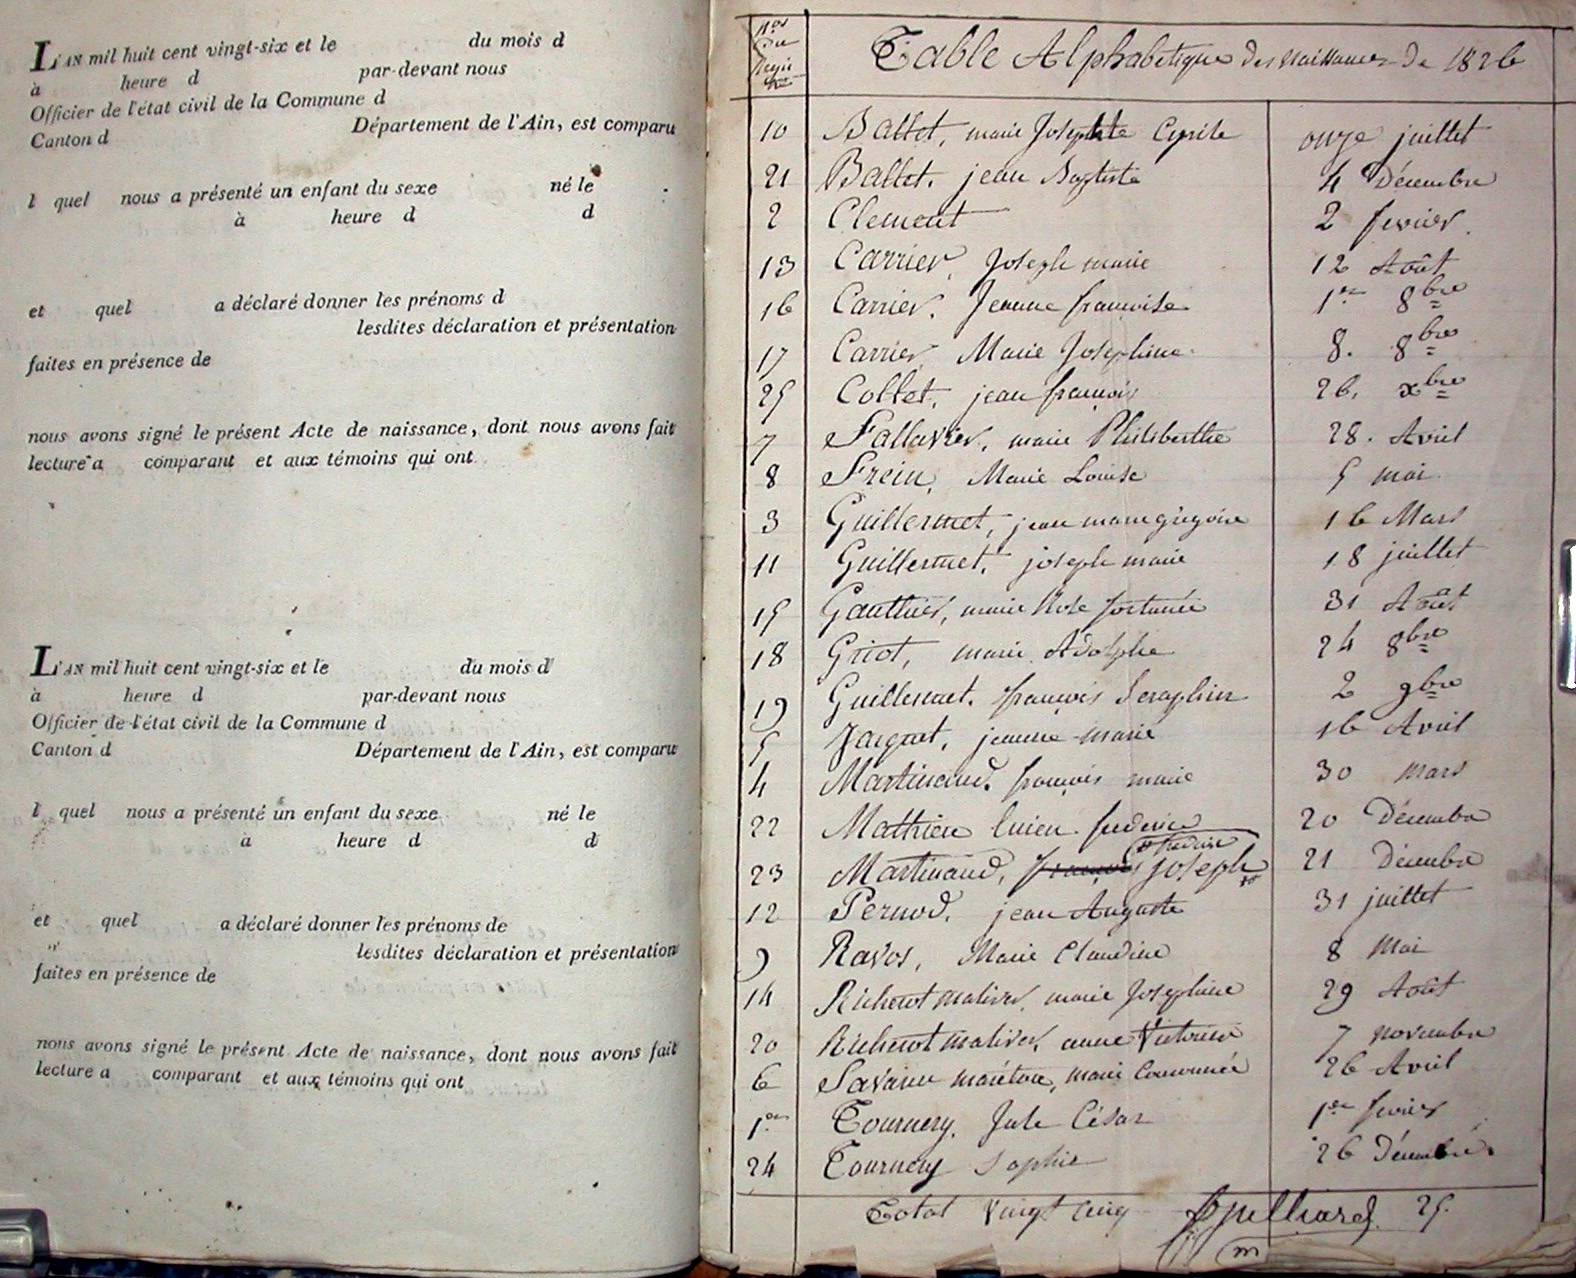 L'AN mil huit cent vingt-six et le du mois d
à heure d par-devant nous
Officier de l'état civil de la Commune d
Canton d Département de l'Ain, est comparu
l quel nous a présenté un enfant du sexe né le
à heure d d
et quel a déclaré donner les prénoms d
lesdites déclaration et présentation
faites en présence de
nous avons signé le présent Acte de naissance, dont nous avons fait
lecture a comparant et aux témoins qui ont
L'AN mil huit cent vingt-six et le du mois d
à heure d par-devant nous
Officier de l'état civil de la Commune d
Canton d Département de l'Ain, est comparu
l quel nous a présenté un enfant du sexe né le
à heure d d
et quel a déclaré donner les prénoms de
lesdites déclaration et présentation
faites en présence de
nous avons signé le présent Acte de naissance, dont nous avons fait
lecture a comparant et aux témoins qui ont
Nos Du Table Alphabetique des naissances De 1826
10 Ballet, marie Josephte Cyrile onze juillet
21 Ballet, jean Baptiste 4 Décembre
2 Clement 2 fevrier.
13 Carrier, Joseph marie 12 Août
16 Carrier, Jeanne françoise 1er 8bre
17 Carrier, Marie Josephine 8. 8bre
25 Collet, jean françois 26, xbre
7 Fallavier, marie Philiberthe 28. Avril
8 Frein, Marie Louise 5 mai
3 Guillermet, jean marie grégoire 16 Mars
11 Guillermet, joseph marie 18 juillet
15 Gauthier, marie Rose fortunée 31 Août
18 Griot, marie Adolphe 24 8bre
19 Guillermet, françois Seraphin 2 9bre
5 Jaiquet, jeanne marie 16 Avril
4 Martinand, françois marie 30 mars
22 Mathieu lucien frederic 20 Décembre
23 Martinand, françois joseph 21 Décembre
12 Pernod, jean Auguste 31 juillet
9 Ravos, Marie Claudine 8 Mai
14 Richerot maliver, marie Josephine 29 Août
20 Richerot maliver, anne Victoire 7 novembre
6 Savarin marie 26 Avril
1er Tournery, Jule César 1er fevrier
24 Tournery Sophie 26 Décembre
Total Vingt cinq 25.